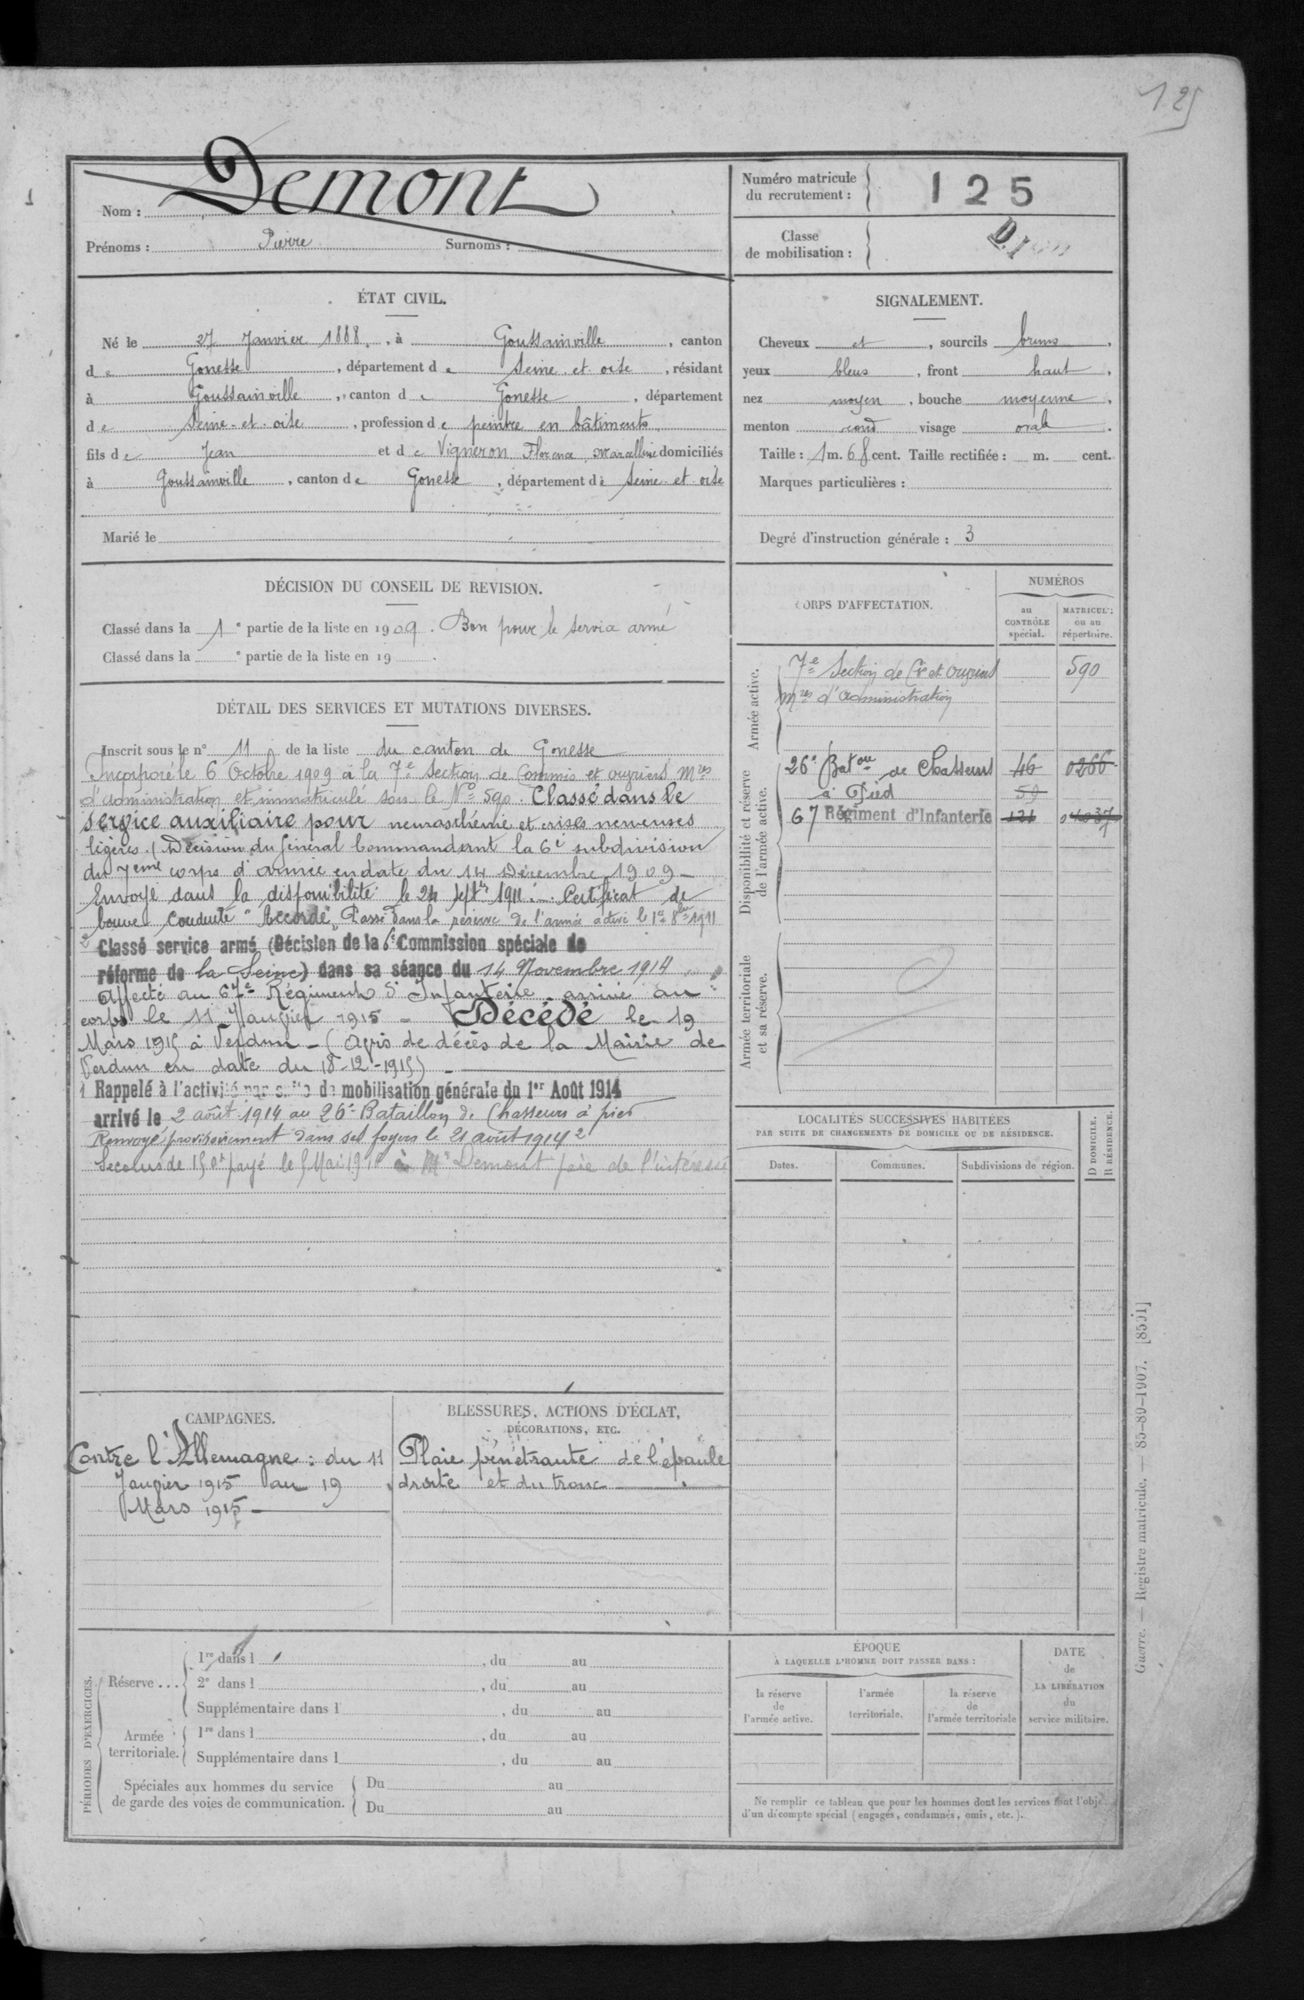 125
Nom : Demont
Prénoms : Pierre Surnoms :
Numéro matricule
du recrutement : 125
Classe
de mobilisation :
ÉTAT CIVIL.
Né le 27 Janvier 1888, à Goussainville, canton
de Gonesse, département de Seine-et-oise, résidant
à Goussainville, canton de Gonesse, département
de Seine-et-oise, profession de peintre en bâtiments
fils de Jean et de Vigneron Florence Marcelline domiciliés
à Goussainville, canton de Gonesse, département de Seine-et-oise
Marié le
SIGNALEMENT.
Cheveux et, sourcils bruns,
yeux bleus, front haut,
nez moyen, bouche moyenne,
menton rond visage ovale.
Taille : 1 m. 68 cent. Taille rectifiée : m. cent.
Marques particulières :
Degré d'instruction générale : 3
DÉCISION DU CONSEIL DE REVISION.
Classé dans la 1e partie de la liste en 1909. Bon pour le service armé
Classé dans la e partie de la liste en 19 .
DÉTAIL DES SERVICES ET MUTATIONS DIVERSES.
Inscrit sous le n° 11 de la liste du canton de Gonesse
Incorporé le 6 Octobre 1909 à la 7e Section de Commis et ouvriers Mres
d'administration et immatriculé sous le No 590. Classé dans le
service auxiliaire pour neurasthénie et crises nerveuses
légères. (Décision du Général Commandant la 6e subdivision
du 7eme corps d'armée en date du 14 Décembre 1909 –
Envoyé dans la disponibilité le 24 Septbre 1911. Certificat de
bonne conduite "Accordé". Passé dans la réserve de l'armée active le 1er 8bre 1911
2 Classé service armé (Décision de la 6e Commission spéciale de
réforme de la Seine) dans sa séance du 14 Novembre 1914
Affecté au 67e Régiment d'Infanterie arrivé au
corps le 11 Janvier 1915 – Décédé le 19
Mars 1915 à Verdun – (Avis de décès de la Mairie de
Verdun en date du 18-12-1915) –
1 Rappelé à l'activité par suite de mobilisation générale du 1er Août 1914
arrivé le 2 août 1914 au 26e Bataillon de Chasseurs à pied
Renvoyé provisoirement dans ses foyers le 21 août 1914 2
Secours de 150f payé le 5 Mai à Mr Demont père de l'intéressé
CORPS D'AFFECTATION.
NUMÉROS
au
CONTRÔLE
spécial.
MATRICULE
ou au
répertoire.
Armée active.
7e Section de Cis et ouvriers 590
Mres d'administration
Disponibilité et réserve
de l'armée active.
26e Baton de Chasseurs 46 0266
à Pied 59
67 Régiment d'Infanterie 121
Armée territoriale
et sa réserve.
LOCALITÉS SUCCESSIVES HABITÉES
PAR SUITE DE CHANGEMENTS DE DOMICILE OU DE RÉSIDENCE.
Dates. Communes. Subdivisions de région.
D DOMICILE.
R RÉSIDENCE.
CAMPAGNES.
Contre l'Allemagne : du 11
Janvier 1915 au 19
Mars 1915 –
BLESSURES, ACTIONS D'ÉCLAT,
DÉCORATIONS, ETC.
Plaie pénétrante de l'épaule
droite et du tronc
PÉRIODES D'EXERCICES.
Réserve ...
1re dans l , du au
2e dans l , du au
Supplémentaire dans l , du au
Armée
territoriale.
1re dans l , du au
Supplémentaire dans l , du au
Spéciales aux hommes du service
de garde des voies de communication.
Du au
Du au
ÉPOQUE
À LAQUELLE L'HOMME DOIT PASSER DANS :
la réserve
de
l'armée active.
l'armée
territoriale.
la réserve
de
l'armée territoriale
DATE
de
LA LIBÉRATION
du
service militaire.
Ne remplir ce tableau que pour les hommes dont les services font l'objet
d'un décompte spécial (engagés, condamnés, omis, etc.).
Guerre. — Registre matricule. — 85-89-1907. [8501]